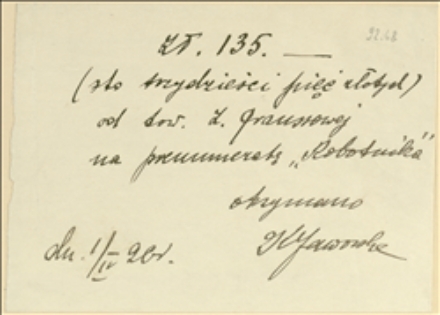 92.48
zł. 135. —
(sto trzydzieści pięć złotych)
od tow. Z. Praussowej
na prenumeratę „Robotnika"
otrzymano
dn. 1/IV 26r. Jaworska